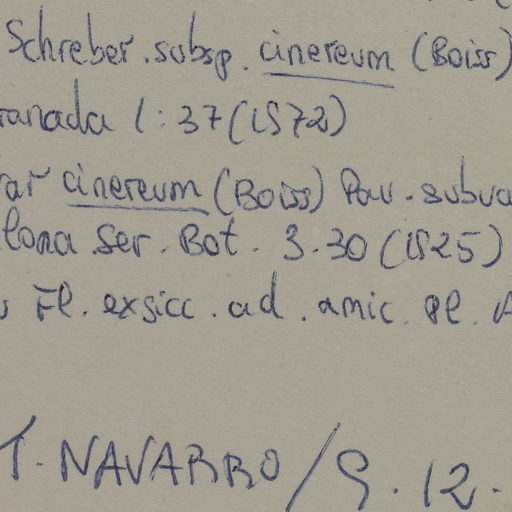 Schreber. subsp. cinereum (Boiss)
ranada 1: 37 (1972)
ar cinereum (Boiss) Pau. subva
lona Ser. Bot. 3. 30 (1925)
Fl. exsicc. ad. amic. pl. A
T. NAVARRO / 9. 12.